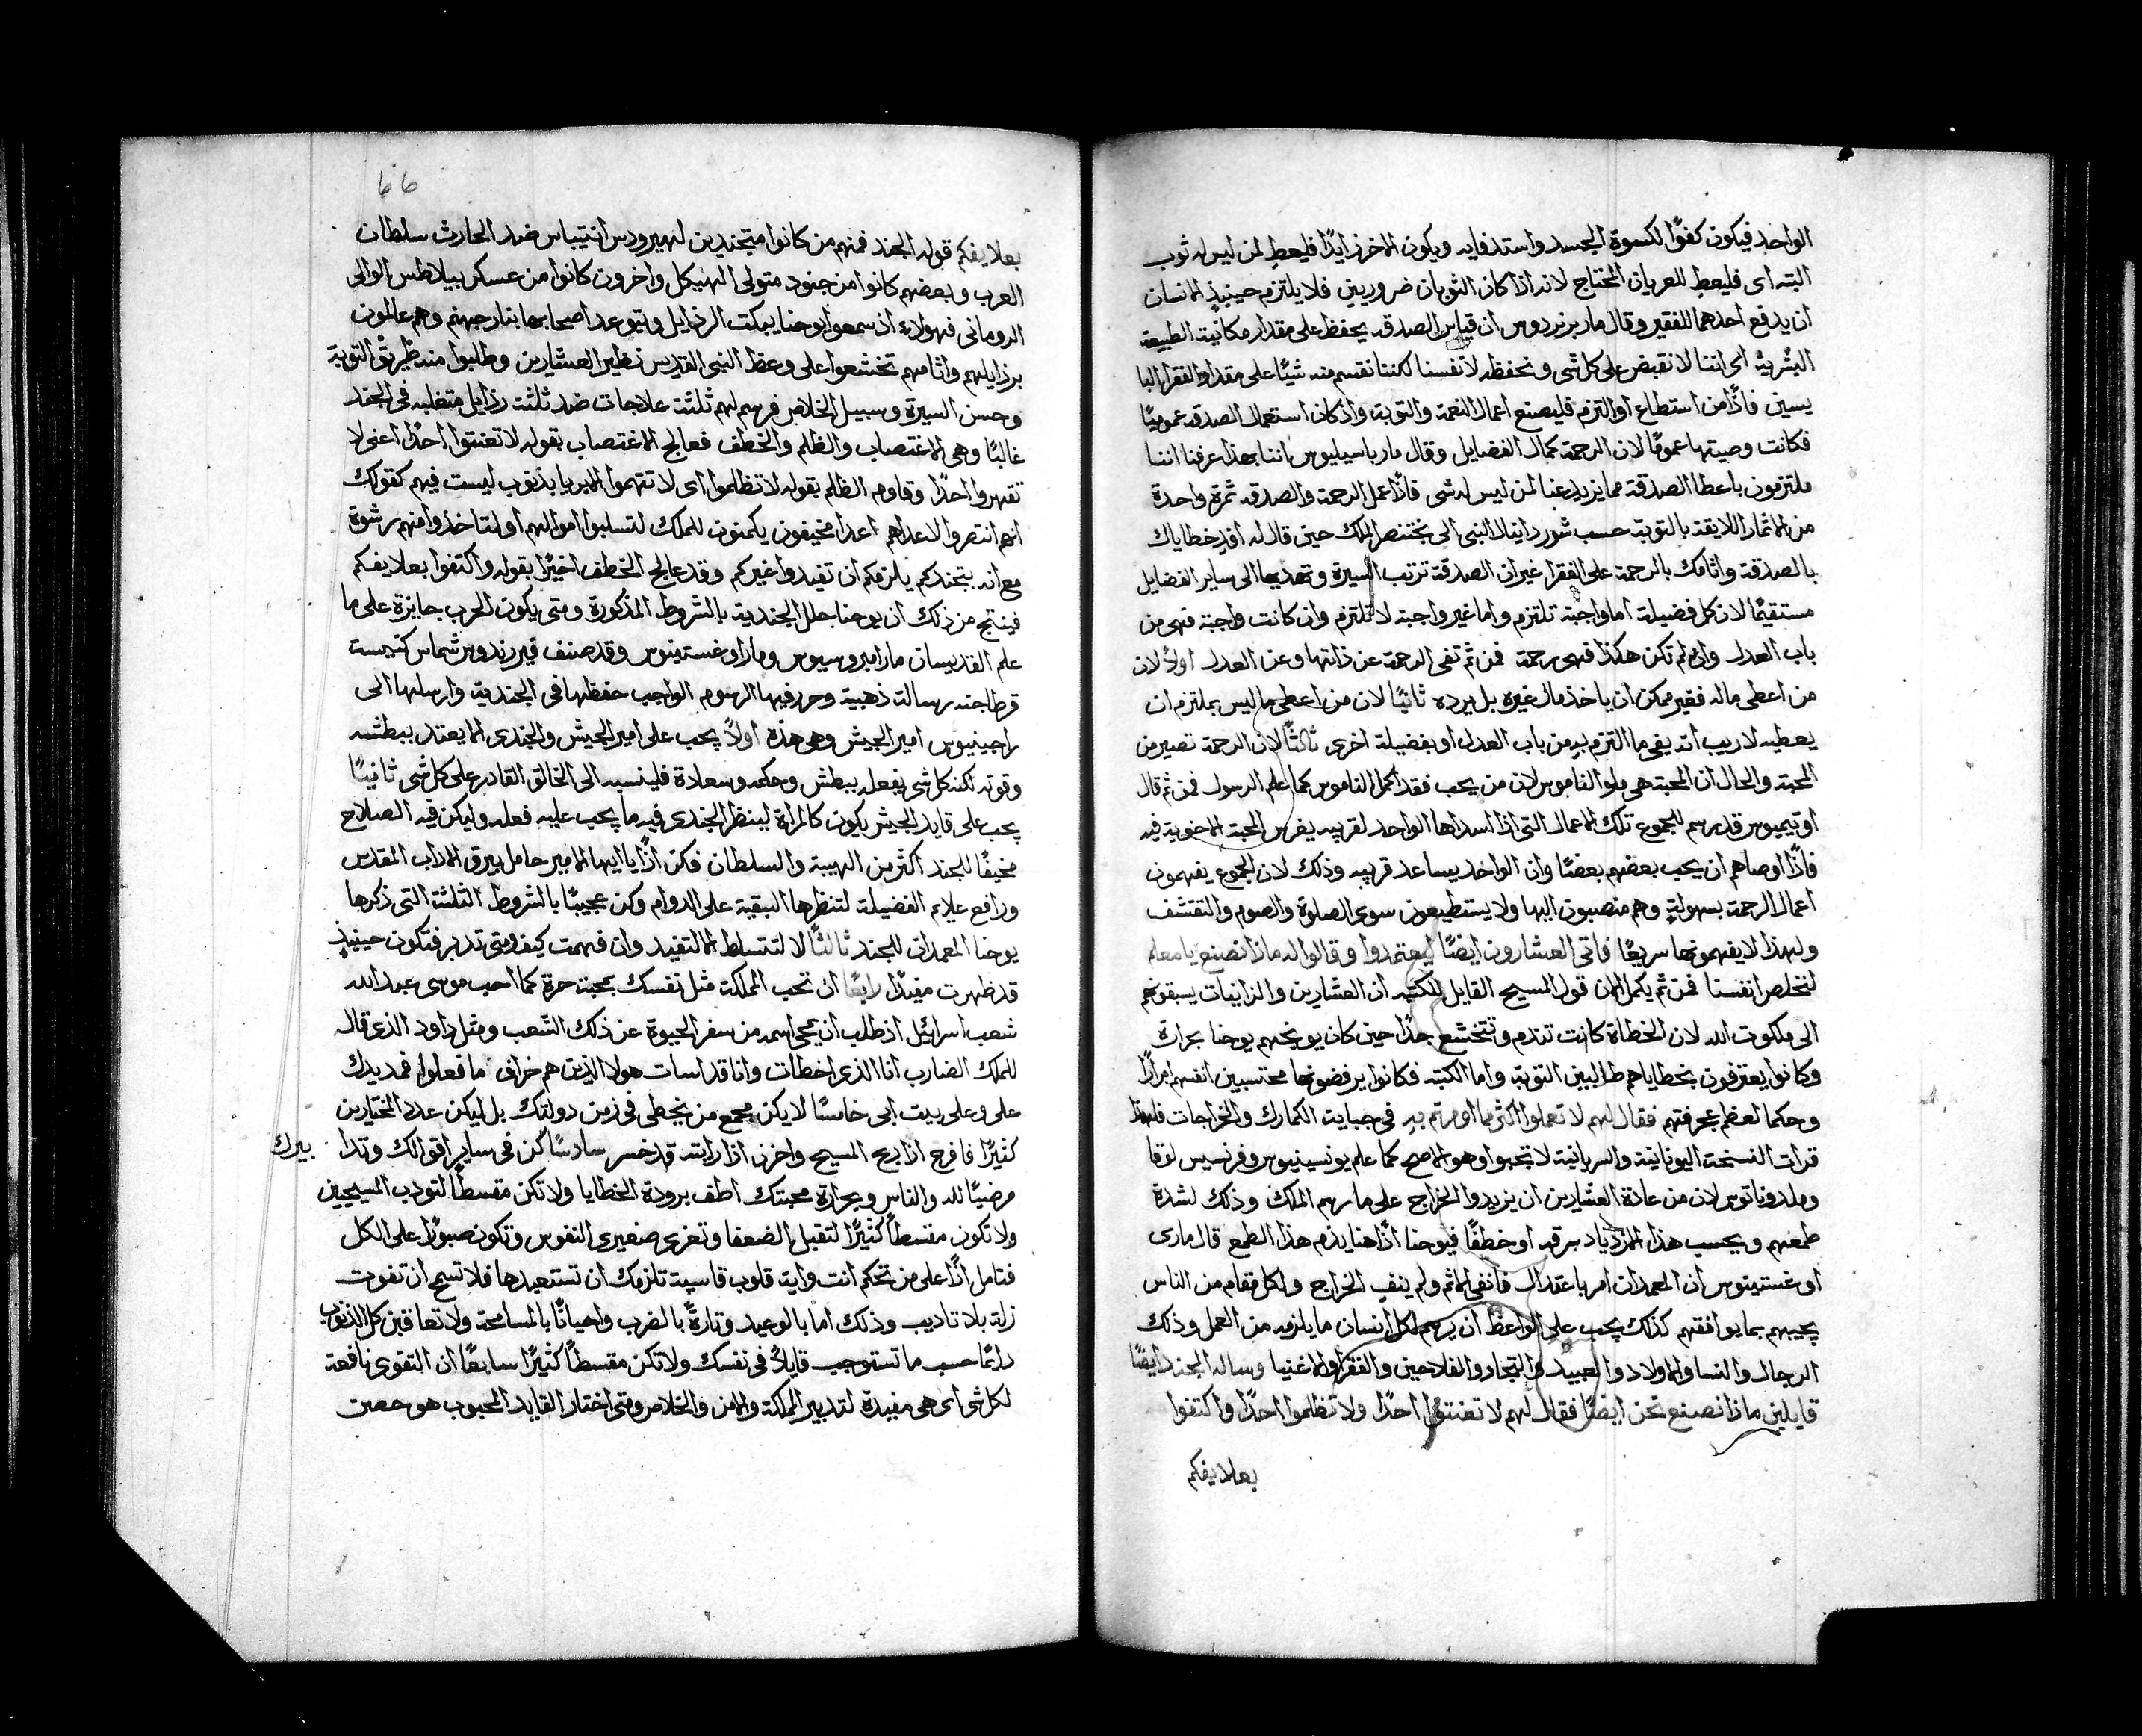 الواحد فيكون كفوًا لكسوة الجسد واستدفايه ويكون الاخر زايدًا فليعطِ لمن ليس له ثوب
البته اى فليعطِ للعريان المحتاج لانه اذا كان الثوبان ضروريين فلا يلتزم حينيذٍ الانسان
ان يدفع احدهما للفقير وقال مار برنردوس ان قياس الصدقه يحفظ على مقدار مكانية الطبيعة
البشرية اى اننا لا نقبض على كل شى ونحفظه لانفسنا لكننا نقسم منه شيئًا على مقدار الفقرا البا
يسين فاذًا من استطاع او التزم فليصنع اعمال النعمة والتوبة واذ كان استعمال الصدقه عموميًا
فكانت وصيتها عمومًا لان الرحمة كمال الفضايل وقال مار باسيليوس اننا بهذا عرفنا اننا
ملتزمون باعطا الصدقة مما يزيد عنا لمن ليس له شى فاذًا عمل الرحمة والصدقه ثمرة واحدة
من الاثمار اللايقة بالتوبة حسب شور دانيال النبى الى بختنصر الملك حين قال له افدِ خطاياك
بالصدقة واثامك بالرحمة على الفقرا غير ان الصدقة ترتب السيرة وتهديها الى ساير الفضايل
مستقيمًا لان كل فضيلة اما واجبة تلتزم واما غير واجبة لا تلتزم وان كانت واجبة فهى من
باب العدل وان لم تكن هكذا فهى رحمة فمن ثم تفى الرحمة عن ذاتها وعن العدل اولاً لان
من اعطى ماله فقير ممكن ان ياخذ مال غيره بل يرده ثانيًا لان من اعطى ما ليس بملتزم ان
يعطيه لا ريب انه يفى ما التزم به من باب العدل او بفضيلة اخرى ثالثًا لان الرحمة تصير من
المحبة والحال ان المحبة هى ملو الناموس لان من يحب فقد اكمل الناموس كما علم الرسول فمن ثم قال
اوتيميوس قد رسم للجموع تلك الاعمال التى اذا اسداها الواحد لقريبه يغرس المحبة الاخوية فيه
فاذًا اوصاهم ان يحب بعضهم بعضًا وان الواحد يساعد قريبه وذلك لان الجموع يفهمون
اعمال الرحمة بسهولةٍ وهم منصبون اليها ولا يستطيعون سوى الصلوة والصوم والتقشف
ولهذا لا يفهمونها سريعًا فاتى العشارون ايضًا ليعتمدوا وقالوا له ماذا نصنع يا معلم
لنخلص انفسنا فمن ثم يكمل الان قول المسيح القايل للكتبه ان العشارين والزانيات يسبقونهم
الى ملكوت الله لان الخطاة كانت تندم وتتخشع جدًا حين كان يوبخهم يوحنا بحرارة
وكانوا يعترفون بخطاياهم طالبين التوبة واما الكتبه فكانوا يرفضونها محتسبين انفسهم ابرارًا
وحكما لعظم عجرفتهم فقال لهم لا تعملوا اكثر مما امرتم بهِ فى جباية الكمارك والخراجات فلهذا
قرات النسخة اليونانية والسريانية لا تجبوا وهو الاصح كما علم يونسينيوس وفرنسيس لوقا
وملدوناتوس لان من عادة العشارين ان يزيدوا الخراج على ما رسم الملك وذلك لشدة
طمعهم ويحسب هذا الازدياد سرقه او خطفًا فيوحنا اذًا هنا يذم هذا الطمع قال مارى
اوغستينوس ان المعمدان امر باعتدال فانفى الاثم ولم ينفِ الخراج ولكل مقام من الناس
يجيبهم بما يوافقهم كذلك يجب على الواعظ ان يرسم لكل انسان ما يلزمه من العمل وذلك
الرجال والنسا والاولاد والعبيد والتجار والفلاحين والفقرا والاغنيا وساله الجند ايضًا
قايلين ماذا نصنع نحن ايضًا فقال لهم لا تعنتوا احدًا ولا تظلموا احدًا واكتفوا
بعلايفكم
66
بعلايفكم قوله الجند فمنهم من كانوا متجندين لهيرودس انتيباس ضد الحارث سلطان
العرب وبعضهم كانوا من جنود متولى الهيكل واخرون كانوا من عسكر بيلاطس الوالى
الرومانى فهولاء اذ سمعوا يوحنا يبكت الرذايل ويتوعد اصحابها بنار جهنم وهم عالمون
برذايلهم واثامهم تخشعوا على وعظ النبى القديس نظير العشارين وطلبوا منه طريق التوبة
وحسن السيرة وسبيل الخلاص فرسم لهم ثلثة علاجات ضد ثلثة رذايل متغلبه فى الجند
غالبًا وهى الاغتصاب والظلم والخطف فعالج الاغتصاب بقوله لا تعنتوا احدًا اعنى لا
تقهروا احدًا وقاوم الظلم بقوله لا تظلموا اى لا تتهموا الابريا بذنوب ليست فيهم كقولك
انهم انتصروا لاعداهم اعدا مخيفون يكمنون للملك لتسلبوا اموالهم او لتاخذوا منهم رشوة
مع انه بتجندكم يلزمكم ان تفيدوا غيركم وقد عالج الخطف اخيرًا بقوله واكتفوا بعلايفكم
فينتج من ذلك ان يوحنا حلل الجندية بالشروط المذكورة ومتى يكون الحرب جايزة على ما
علم القديسان مار امبروسيوس ومار اوغستينوس وقد صنف فيررندوس شماس كنيسة
قرطاجنه رسالة ذهبية وحرر فيها الرسوم الواجب حفظها فى الجندية وارسلها الى
راجينيوس امير الجيش وهى هذه اولاً يجب على امير الجيش والجندى الا يعتد ببطشه
وقوته لكنه كل شى يفعله ببطش وحكمه وسعادة فلينسبه الى الخالق القادر على كل شى ثانيًا
يجب على قايد الجيش يكون كالمراة لينظر الجندى فيه ما يجب عليه فعله وليكن فيه الصلاح
مخيفًا للجند اكثر من الهيبة والسلطان فكن اذًا يا ايها الامير حامل بيرق الاداب المقدس
ورافع علايم الفضيلة لتنظرها البقية على الدوام وكن مجيبًا بالشروط الثلثة التى ذكرها
يوحنا المعمدان للجند ثالثًا لا لتتسلط الا لتفيد وان فهمت كيف ومتى تدبر فتكون حينيذٍ
قد ظهرت مفيدًا رابعًا ان تحب المملكة مثل نفسك بمحبة حرة كما احب موسى عبد الله
شعب اسرائيل اذ طلب ان يمحى اسمه من سفر الحيوة عن ذلك الشعب ومثل داود الذى قال
للملاك الضارب انا الذى اخطات وانا قد اسات هولا الذين هم خراف ما فعلوا فمد يدك
على وعلى بيت ابى خامسًا لا يكن مجمع من يخطى فى زمن دولتك بل ليكن عدد المختارين
كثيرًا فافرح اذا ربح المسيح واحزن اذا رايته قد خسر سادسًا كن فى ساير اقوالك وتدا
بيرك
مرضيًا لله والناس وبحرارة محبتك اطف برودة الخطايا ولا تكن مقسطًا لتودب المسيحيين
ولا تكون مقسطًا كثيرًا لتقبل الضعفا وتعزى صغيرى النفوس وتكون صبورًا على الكل
فتامل اذًا على من تحكم انت واية قلوب قاسية تلزمك ان تستعبدها فلا تسمح ان تفوت
زلة بلا تاديب وذلك اما بالوعيد وتارةً بالضرب واحيانًا بالمسامحة ولا تعاقبن كل الذنوب
دايمًا حسب ما تستوجب قايلاً فى نفسك ولا تكن مقسطًا كثيرًا سابعًا ان التقوى نافعة
لكل شى اى هى مفيدة لتدبير المملكة والامن والخلاص ومتى اختار القايد المحبوب هو حصن